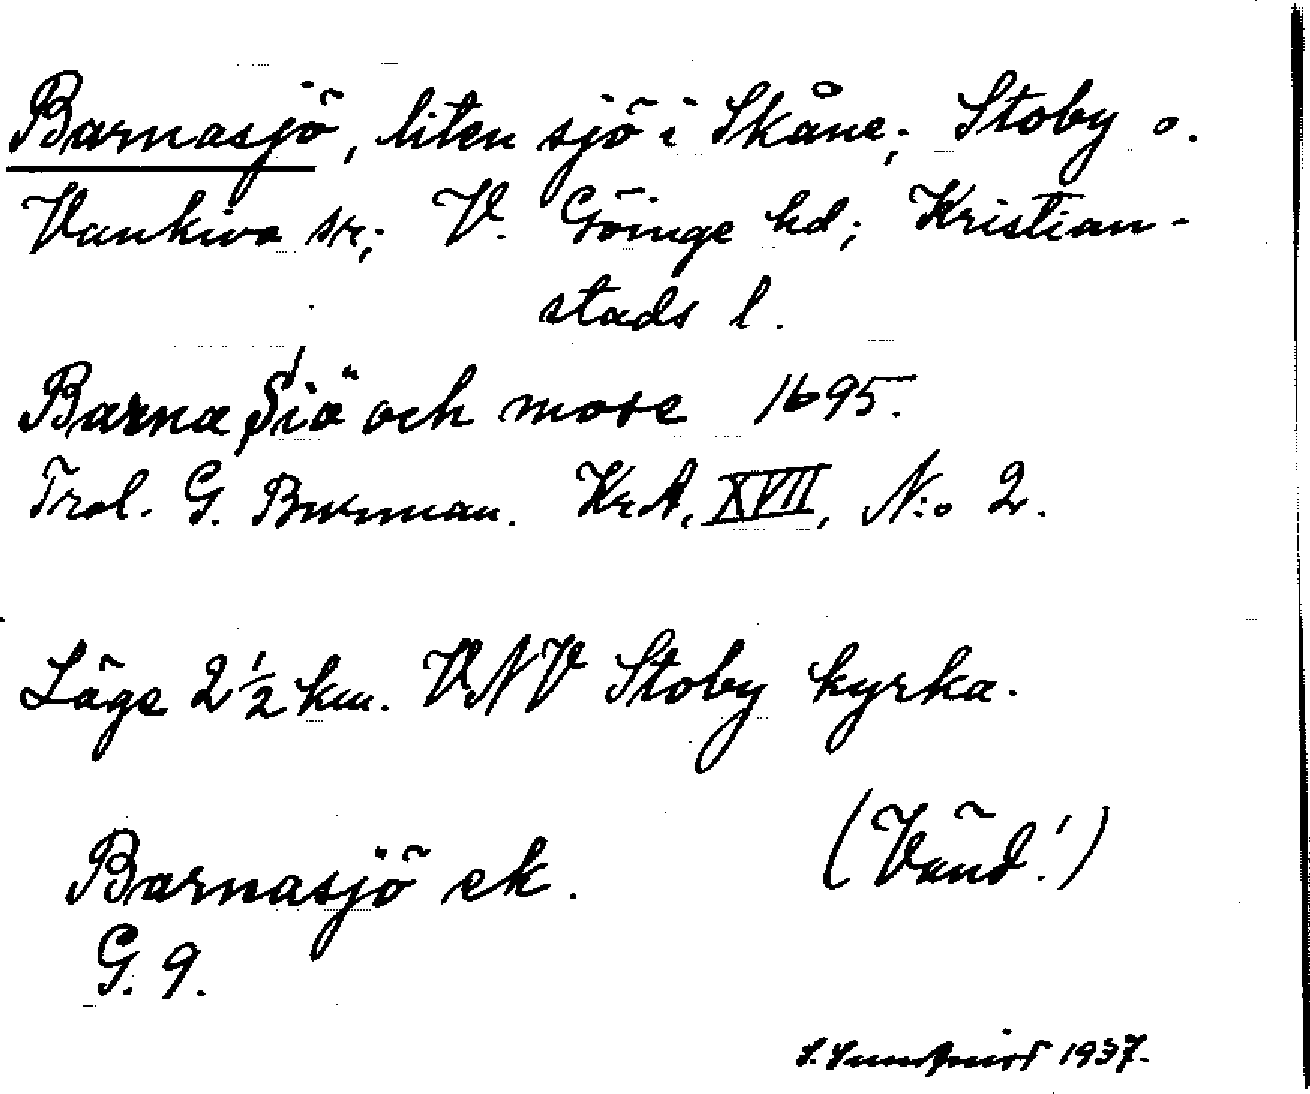 Barnasjö, liten sjö i Skåne; Stoby o.
Vankiva sr; V. Göinge hd; Kristian-
stads l.
Barna Siö och mose 1695.
G. Burman. KrA, XVII, N:o 2.
Läge 2 1/2 km. VNV Stoby kyrka.
(Vänd!)
Barnasjö ek.
G. 9.
1937.